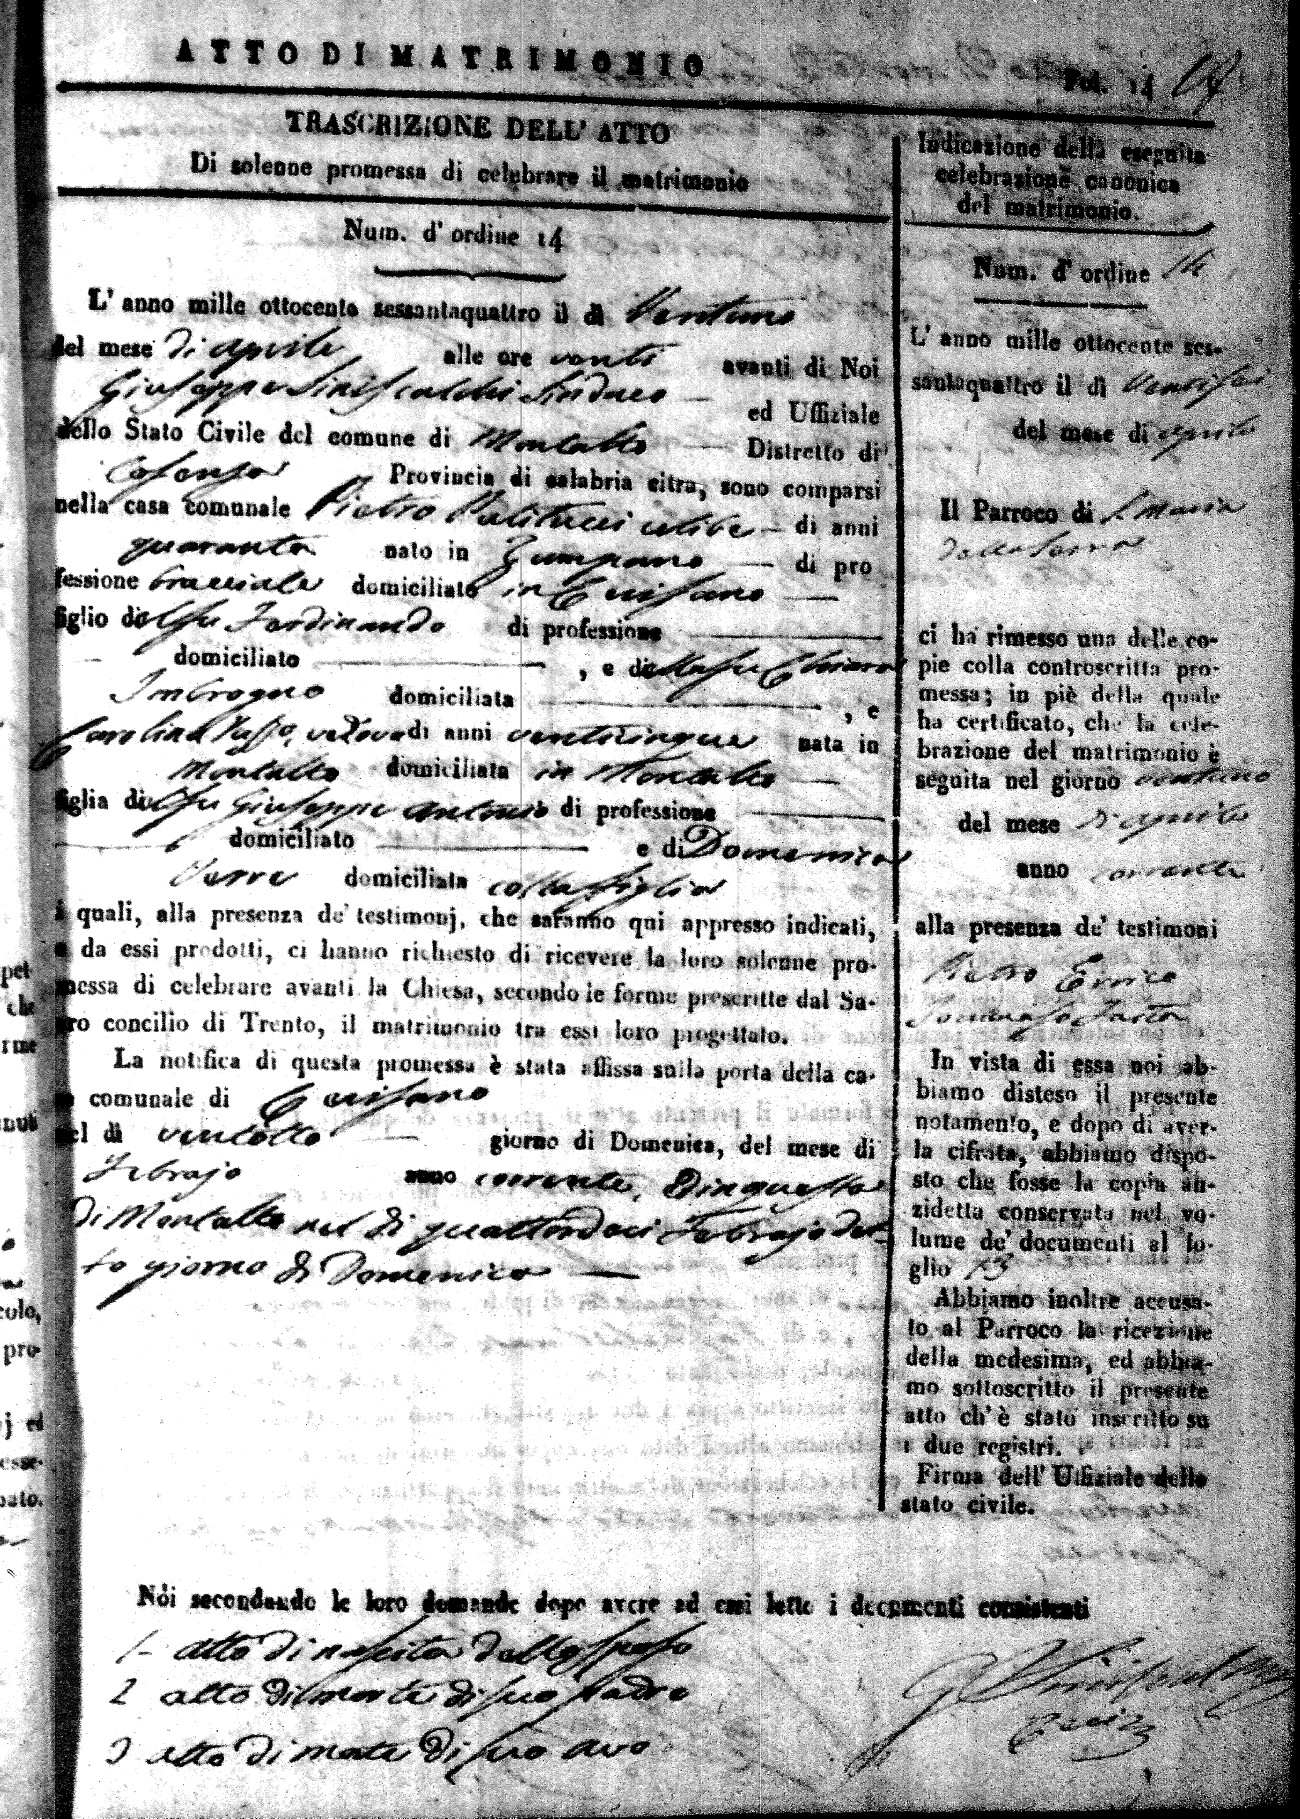 ATTO DI MATRIMONIO
Fol. 14
TRASCRIZIONE DELL' ATTO
Di solenne promessa di celebrare il matrimonio
Num. d' ordine 14
L' anno mille ottocento sessantaquattro il dì Ventuno
del mese di aprile alle ore venti avanti di Noi
Giuseppe Siniscalchi Sindaco ed Uffiziale
dello Stato Civile del comune di Montalto Distretto di
Cosenza Provincia di calabria citra, sono comparsi
nella casa comunale Pietro Palitucci celibe di anni
quaranta nato in Zumpano di pro
fessione bracciale domiciliato in Cerisano
figlio del fu Ferdinando di professione
domiciliato , e della fu Chiara
Imbrogno domiciliata , e
Carolina Russo, vedova di anni venticinque nata in
Montalto domiciliata in Montalto
figlia del fu Giuseppe Antonio di professione
domiciliato e di Domenica
Serre domiciliata colla figlia
i quali, alla presenza de' testimonj, che saranno qui appresso indicati,
e da essi prodotti, ci hanno richiesto di ricevere la loro solenne pro-
messa di celebrare avanti la Chiesa, secondo le forme prescritte dal Sa-
gro concilio di Trento, il matrimonio tra essi loro progettato.
La notifica di questa promessa è stata affissa sulla porta della ca-
comunale di Cerisano
nel dì ventotto giorno di Domenica, del mese di
Febrajo anno corrente, e in questa
di Montalto nel dì quattordeci Febrajo det-
to giorno di Domenica
Indicazione della eseguita
celebrazione canonica
del matrimonio.
Num. d' ordine 14
L' anno mille ottocento ses-
santaquattro il dì Ventisei
del mese di aprile
Il Parroco di S. Maria
della Serra
ci ha rimesso una delle co-
pie colla controscritta pro-
messa; in piè della quale
ha certificato, che la cele-
brazione del matrimonio è
seguita nel giorno ventuno
del mese di aprile
anno corrente
alla presenza de' testimoni
Pietro Errico
In vista di essa noi ab-
biamo disteso il presente
notamento, e dopo di aver-
la cifrata, abbiamo dispo-
sto che fosse la copia an-
zidetta conservata nel vo-
lume de' documenti al fo-
glio 13
Abbiamo inoltre accusa-
to al Parroco la ricezione
della medesima, ed abbia-
mo sottoscritto il presente
atto ch' è stato inscritto su
i due registri.
Firma dell' Uffiziale dello
stato civile.
Noi secondando le loro domande dopo avere ad essi letto i documenti consistenti
1 atto di nascita dello sposo
2 atto di morte di suo padre
3 atto di morte di suo avo